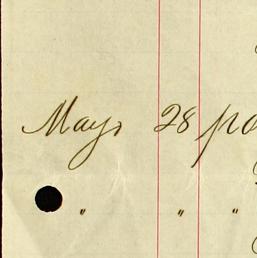 May 28
" " "